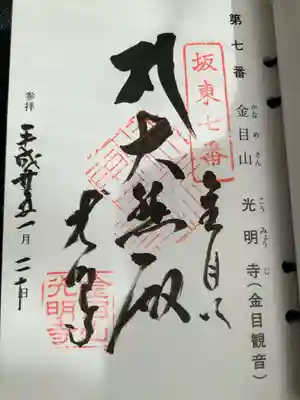 第七番
金目山 光明寺(金目観音)
かなめさん こうみょうじ
坂東七番
奉拝
大悲殿
金目山
光明寺
参拝
平成廿五年一月二十日
金目山
光明寺